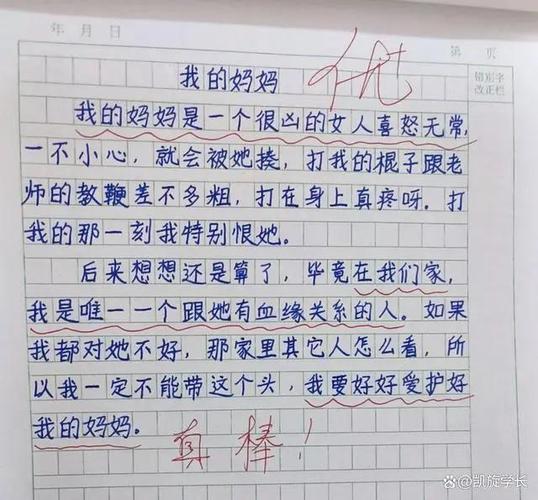 年 月 日
第 页
我的妈妈
优+
错别字
改正栏
我的妈妈是一个很凶的女人喜怒无常,
一不小心，就会被她揍，打我的棍子跟老
师的教鞭差不多粗，打在身上真疼呀．打
我的那一刻我特别恨她。
后来想想还是算了，毕竟在我们家，
我是唯一一个跟她有血缘关系的人。如果
我都对她不好，那家里其它人怎么看，所
以我一定不能带这个头，我要好好爱护好
我的妈妈．
真棒！
@凯旋学长